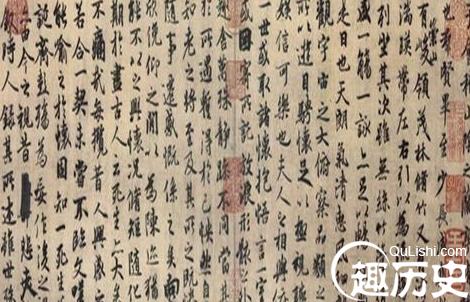 也羣賢畢至少長
有崇山峻領茂林脩竹又
湍暎帶左右引以為
列坐其次雖無絲竹
盛一觴一詠亦足以暢
是日也天朗氣清惠
觀宇宙之大俯察品類
所以遊目騁懷足以極視
娛信可樂也夫人之相與
一世或取諸懷抱悟言一室
或因寄所託放浪形骸
趣舍萬殊靜躁不同當
於所遇蹔得於己怏然
知老之將至及其所之
隨事遷感慨係之矣向
欣俛仰之閒以為陳迹猶
能不以之興懷況脩短隨化
期於盡古人云死生亦大矣
不痛哉每攬昔人興感
若合一契未嘗不臨文嗟
能喻之於懷固知一死生
誕齊彭殤為妄作後之
由今之視昔悲夫
時人錄其所述雖世
QuLishi.com
趣历史